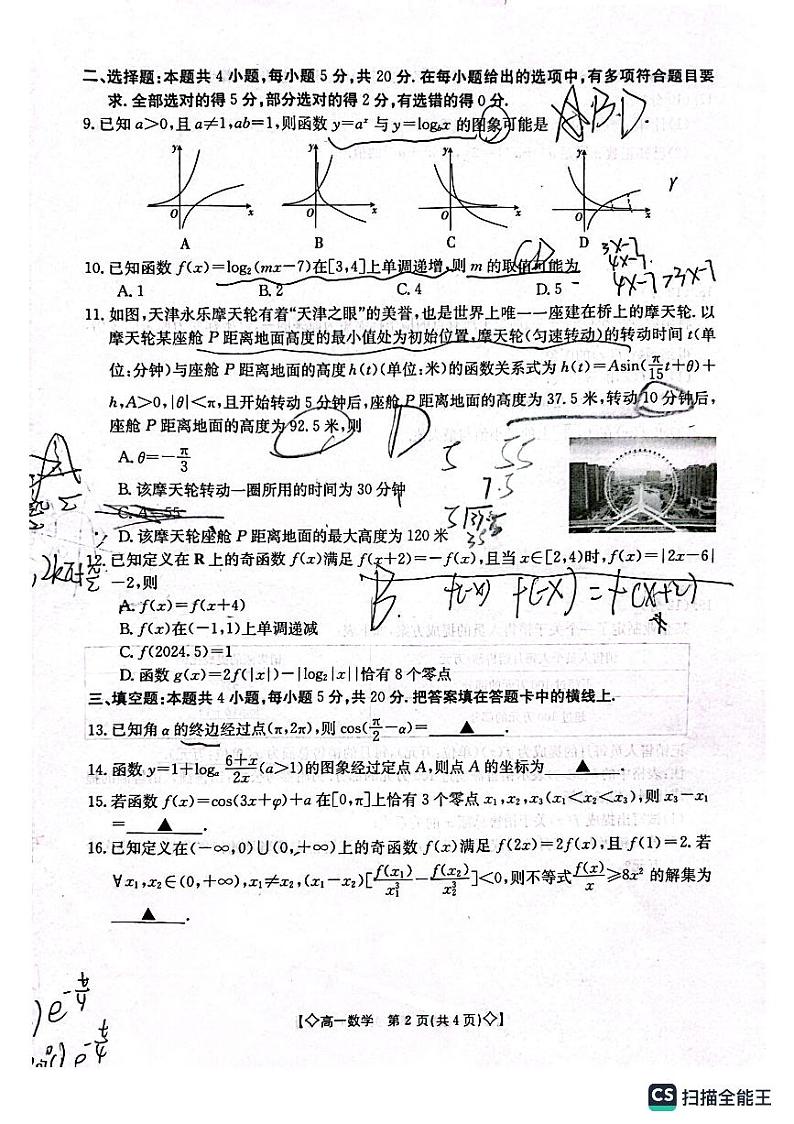 二、选择题:本题共 4 小题,每小题 5 分,共 20 分. 在每小题给出的选项中,有多项符合题目要
求. 全部选对的得 5 分,部分选对的得 2 分,有选错的得 0 分.
9. 已知 a>0,且 a≠1,ab=1,则函数 y=aˣ 与 y=log_b x 的图象可能是
A.B.D.
y y y y
O x O x O x O x
A B C D
10. 已知函数 f(x)=log₂(mx-7)在[3,4]上单调递增,则 m 的取值可能为
CD
3x-7
4x-7.
4x-7>3x-7
A. 1 B. 2 C. 4 D. 5
11. 如图,天津永乐摩天轮有着“天津之眼”的美誉,也是世界上唯一一座建在桥上的摩天轮. 以
摩天轮某座舱 P 距离地面高度的最小值处为初始位置,摩天轮(匀速转动)的转动时间 t(单
位:分钟)与座舱 P 距离地面的高度 h(t)(单位:米)的函数关系式为 h(t)=Asin(π/15 t+θ)+
h,A>0,|θ|<π,且开始转动 5 分钟后,座舱 P 距离地面的高度为 37.5 米,转动 10 分钟后,
座舱 P 距离地面的高度为 92.5 米,则
D
A. θ=-π/3
B. 该摩天轮转动一圈所用的时间为 30 分钟
C. A=55
D. 该摩天轮座舱 P 距离地面的最大高度为 120 米
5 55
7.5
12. 已知定义在 R 上的奇函数 f(x)满足 f(x+2)=-f(x),且当 x∈[2,4)时,f(x)=|2x-6|
-2,则
B.
f(-x) f(-x)=f(x+2)
A. f(x)=f(x+4)
B. f(x)在(-1,1)上单调递减
C. f(2024.5)=1
D. 函数 g(x)=2f(|x|)-|log₂|x||恰有 8 个零点
三、填空题:本题共 4 小题,每小题 5 分,共 20 分. 把答案填在答题卡中的横线上.
13. 已知角 α 的终边经过点(π,2π),则 cos(π/2-α)= ▲ .
14. 函数 y=1+logₐ (6+x)/2x (a>1)的图象经过定点 A,则点 A 的坐标为 ▲ .
15. 若函数 f(x)=cos(3x+φ)+a 在[0,π]上恰有 3 个零点 x₁,x₂,x₃(x₁<x₂<x₃),则 x₃-x₁
= ▲ .
16. 已知定义在(-∞,0)∪(0,+∞)上的奇函数 f(x)满足 f(2x)=2f(x),且 f(1)=2. 若
∀x₁,x₂∈(0,+∞),x₁≠x₂,(x₁-x₂)[f(x₁)/x₁³-f(x₂)/x₂³]<0,则不等式 f(x)/x ≥8x² 的解集为
▲ .
【◇高一数学 第 2 页(共 4 页)◇】
CS 扫描全能王